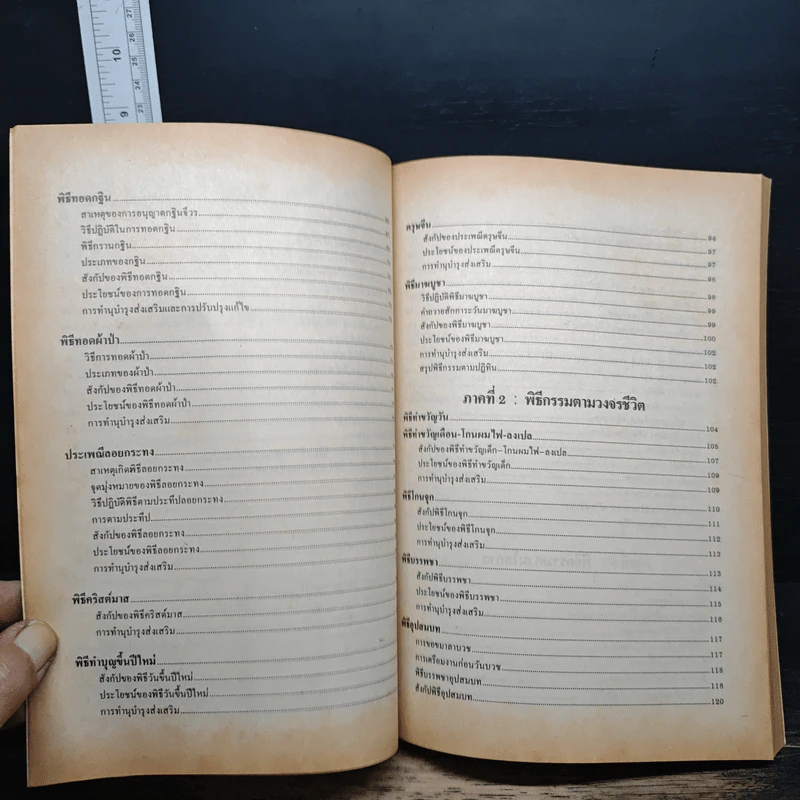 10
9
27
26
24
23
พิธีทอดกฐิน
สาเหตุของการอนุญาตกฐินจีวร
วิธีปฏิบัติในการทอดกฐิน
พิธีกรานกฐิน
ประเภทของกฐิน
สังกัปของพิธีทอดกฐิน
ประโยชน์ของการทอดกฐิน
การทำนุบำรุงส่งเสริมและการปรับปรุงแก้ไข
พิธีทอดผ้าป่า
วิธีการทอดผ้าป่า
ประเภทของผ้าป่า
สังกัปของพิธีทอดผ้าป่า
ประโยชน์ของพิธีทอดผ้าป่า
การทำนุบำรุงส่งเสริม
ประเพณีลอยกระทง
สาเหตุเกิดพิธีลอยกระทง
จุดมุ่งหมายของพิธีลอยกระทง
วิธีปฏิบัติพิธีตามประทีปลอยกระทง
การตามประทีป
สังกัปของพิธีลอยกระทง
ประโยชน์ของพิธีลอยกระทง
การทำนุบำรุงส่งเสริม
พิธีคริสต์มาส
สังกัปของพิธีคริสต์มาส
การทำนุบำรุงส่งเสริม
พิธีทำบุญขึ้นปีใหม่
สังกัปของพิธีวันขึ้นปีใหม่
ประโยชน์ของพิธีวันขึ้นปีใหม่
การทำนุบำรุงส่งเสริม
ตรุษจีน 94
สังกัปของประเพณีตรุษจีน 97
ประโยชน์ของประเพณีตรุษจีน 97
การทำนุบำรุงส่งเสริม 98
พิธีมาฆบูชา
วิธีปฏิบัติพิธีมาฆบูชา 98
คำถวายสักการะวันมาฆบูชา 99
สังกัปของพิธีมาฆบูชา 99
ประโยชน์ของพิธีมาฆบูชา 100
การทำนุบำรุงส่งเสริม 102
สรุปพิธีกรรมตามปฏิทิน 102
ภาคที่ 2 : พิธีกรรมตามวงจรชีวิต
พิธีทำขวัญวัน 104
พิธีทำขวัญเดือน-โกนผมไฟ-ลงเปล 105
สังกัปของพิธีทำขวัญเด็ก-โกนผมไฟ-ลงเปล 107
ประโยชน์ของพิธีทำขวัญเด็ก 109
การทำนุบำรุงส่งเสริม 109
พิธีโกนจุก 110
สังกัปพิธีโกนจุก 111
ประโยชน์ของพิธีโกนจุก 112
การทำนุบำรุงส่งเสริม 112
พิธีบรรพชา 113
สังกัปพิธีบรรพชา 114
ประโยชน์ของพิธีบรรพชา 115
การทำนุบำรุงส่งเสริม 116
พิธีอุปสมบท 117
การขอขมาลาบวช 117
การเตรียมงานก่อนวันบวช 118
พิธีบรรพชาอุปสมบท 118
สังกัปพิธีอุปสมบท 120